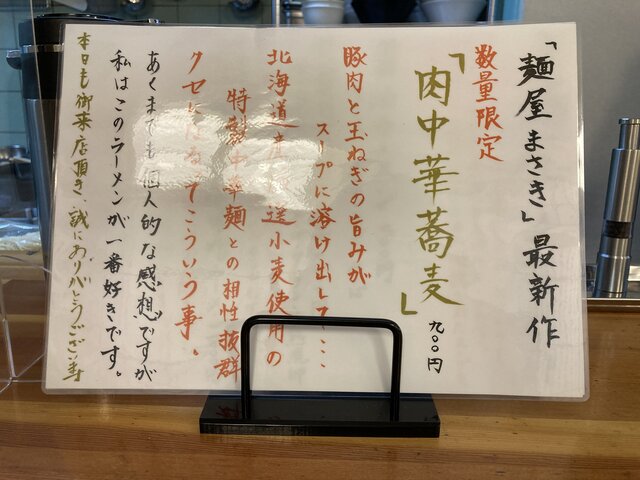 「麺屋まさき」最新作
数量限定
「肉中華蕎麦」
九〇〇円
豚肉と玉ねぎの旨みが
スープに溶け出して…
北海道産 選小麦使用の
特製中華麺との相性抜群
クセになるってこういう事。
あくまでも個人的な感想ですが
私はこのラーメンが一番好きです。
本日も御来店頂き、誠にありがとうござい寿